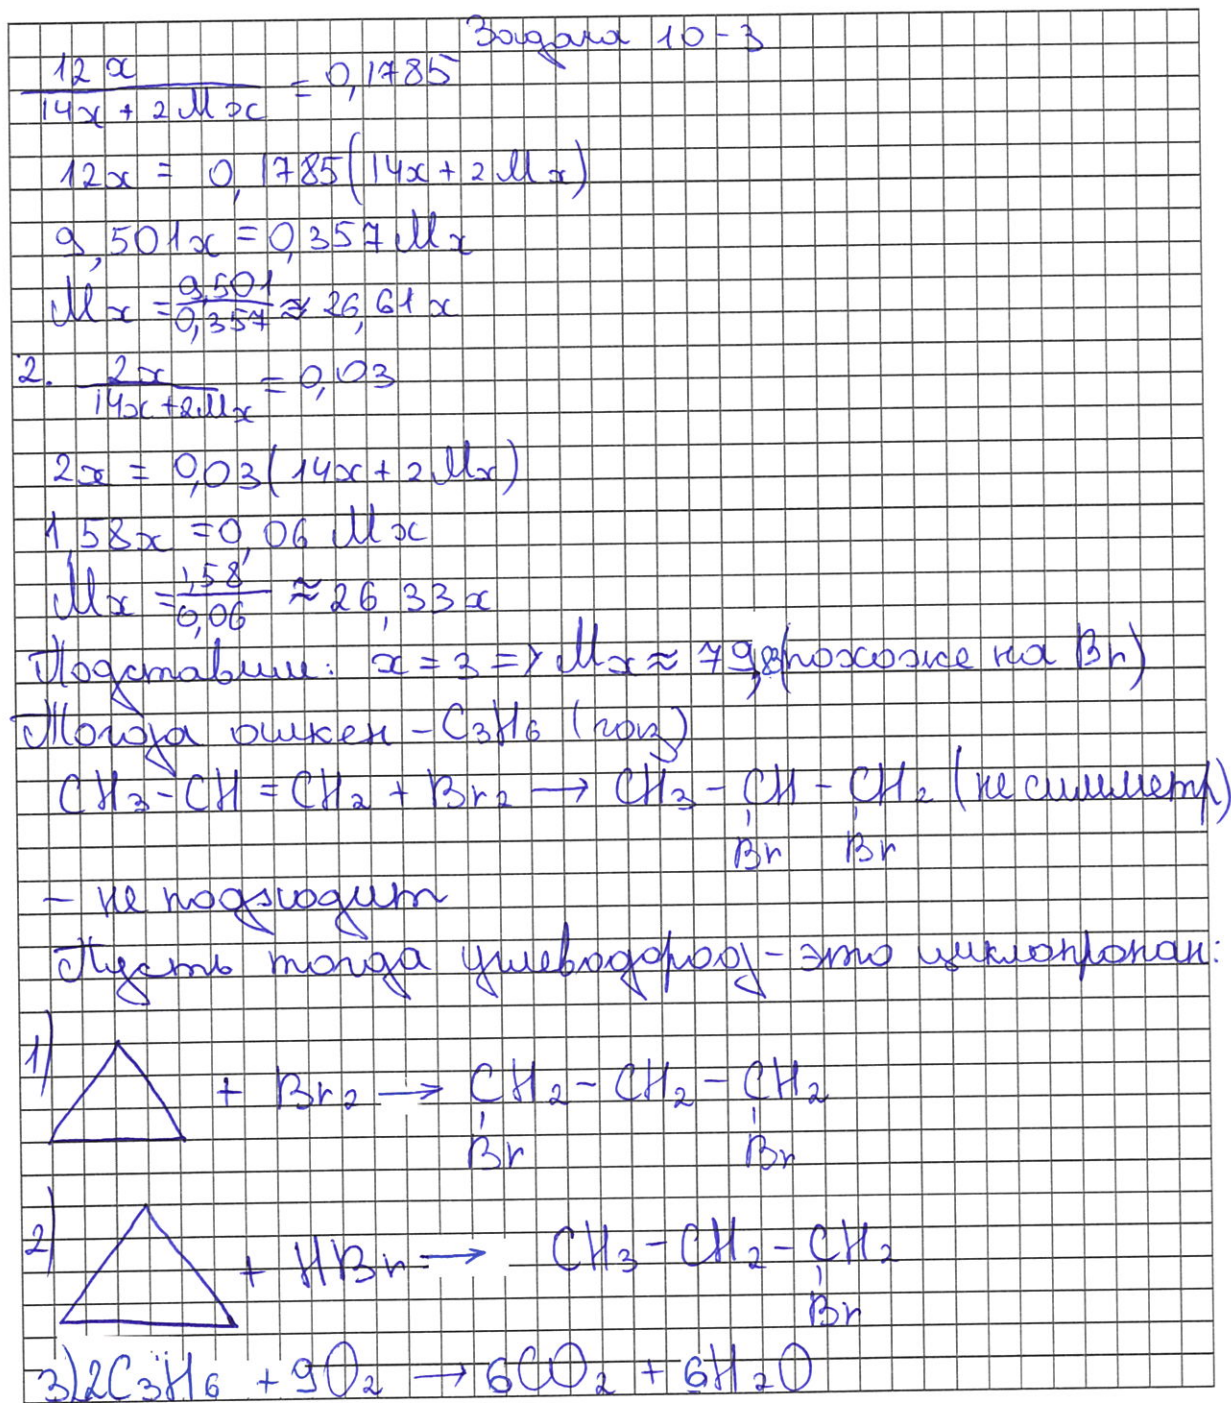 Задача 10-3
12x / (14x + 2Mx) = 0,1785
12x = 0,1785(14x + 2Mx)
9,501x = 0,357Mx
Mx = 9,501 / 0,357 ≈ 26,61x
2. 2x / (14x + 2Mx) = 0,03
2x = 0,03(14x + 2Mx)
1,58x = 0,06 Mx
Mx = 1,58 / 0,06 ≈ 26,33x
Подставим: x = 3 => Mx ≈ 79,8 (похоже на Br)
Тогда алкен - C3H6 (газ)
CH3 - CH = CH2 + Br2 → CH3 - CH - CH2 (не симметр)
Br Br
- не подходит
Пусть тогда углеводород - это циклопропан:
1) + Br2 → CH2 - CH2 - CH2
Br Br
2) + HBr → CH3 - CH2 - CH2
Br
3) 2C3H6 + 9O2 → 6CO2 + 6H2O